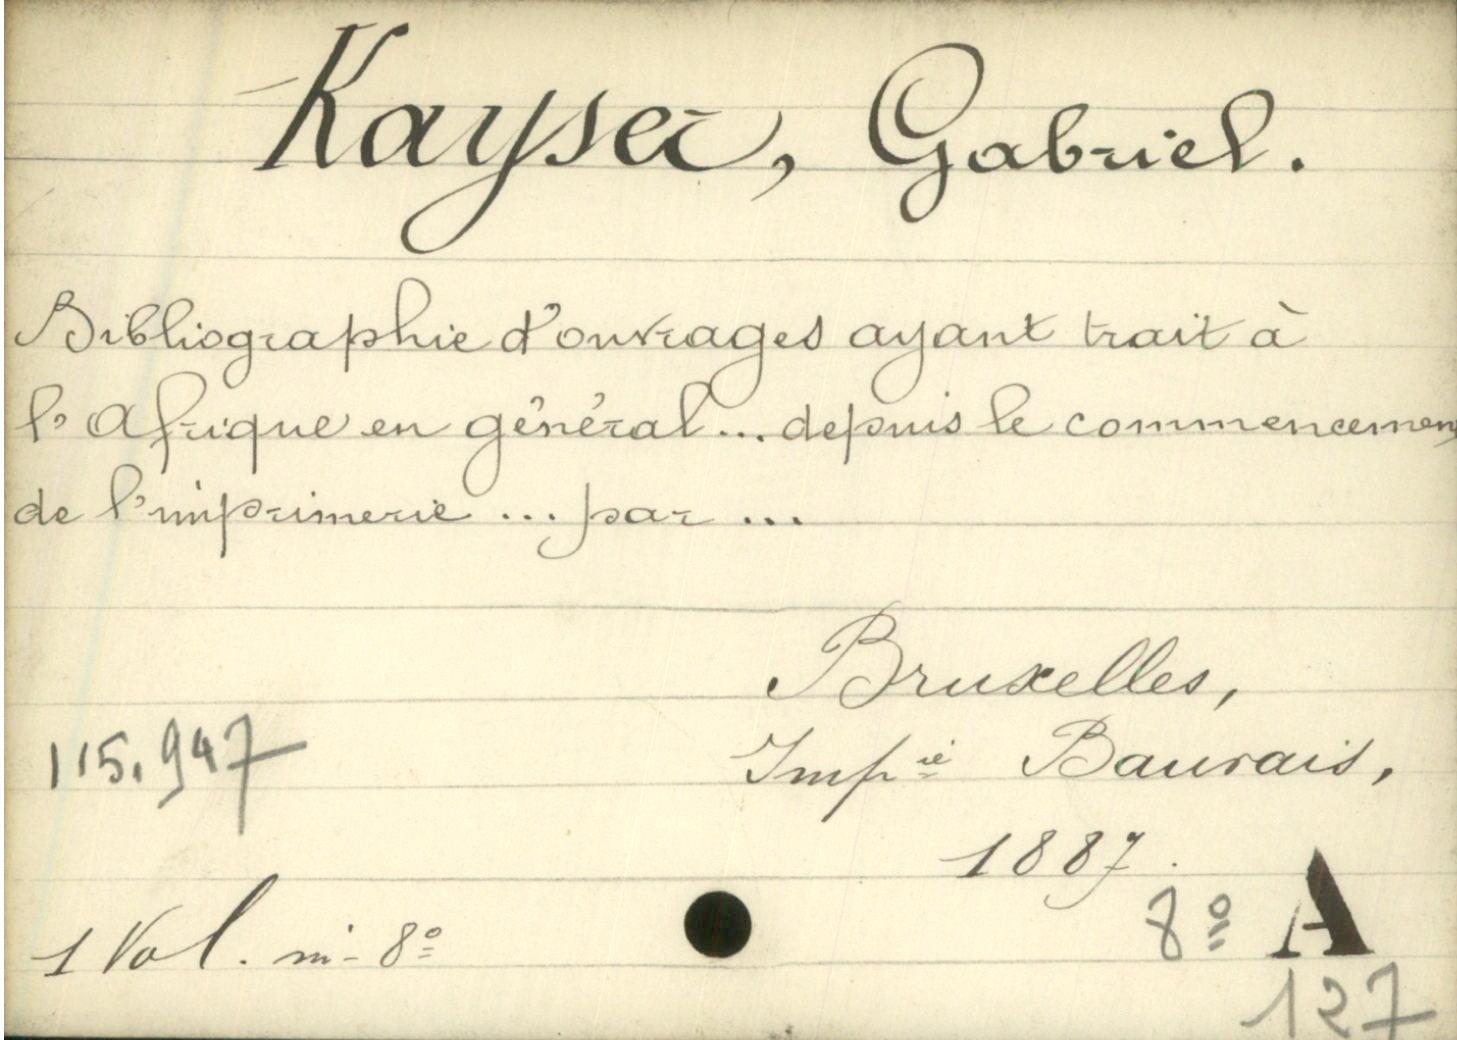 Kayser, Gabriel.
Bibliographie d'ouvrages ayant trait à
l'Afrique en général... depuis le commencement
de l'imprimerie ... par ...
Bruxelles,
115.947
Imp ie Bauvais,
1887.
8º A
1 Vol. in-8º
127